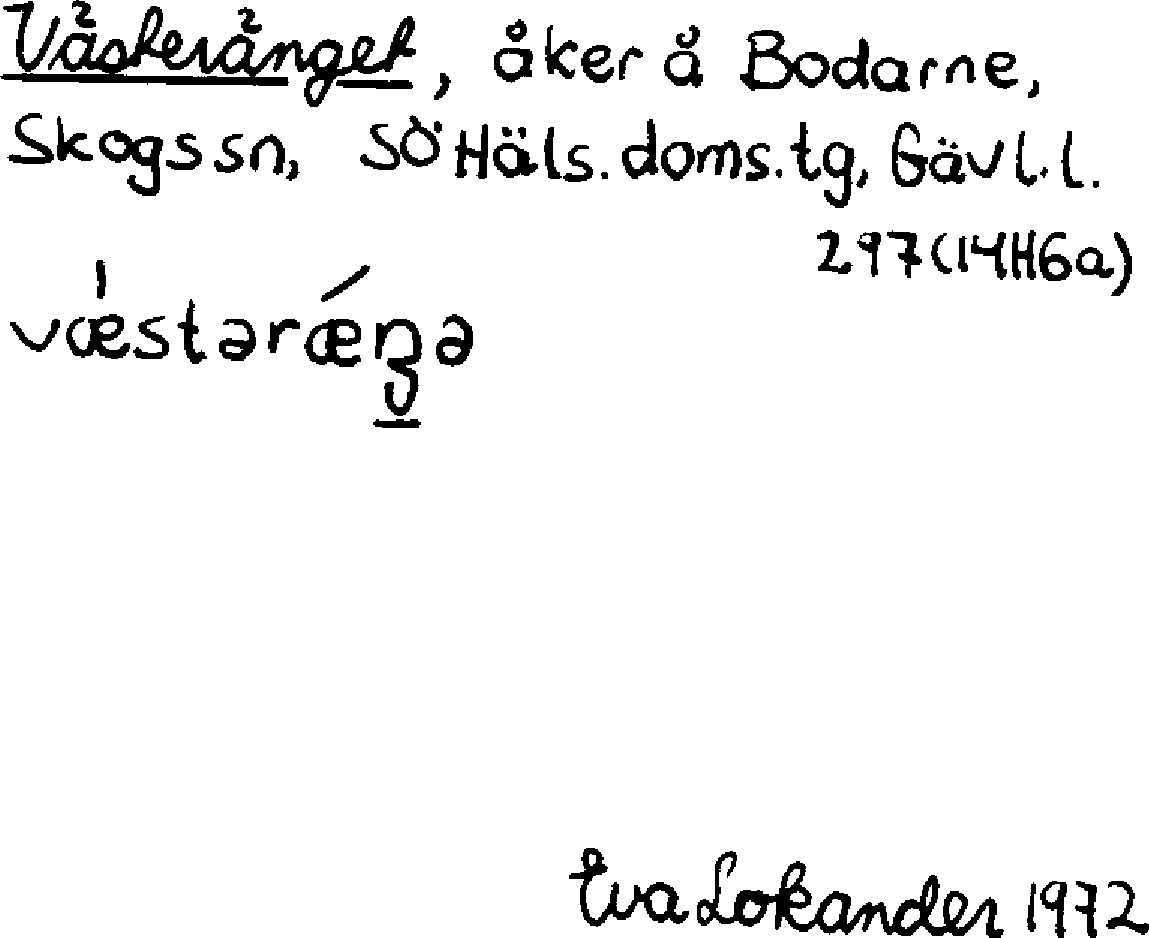 Västeränget, åker å Bodarne,
Skogs sn, SÖ Häls. doms. tg, Gävl. l.
297 (14H6a)
vǽstərǽŋə
Eva Lokander 1972